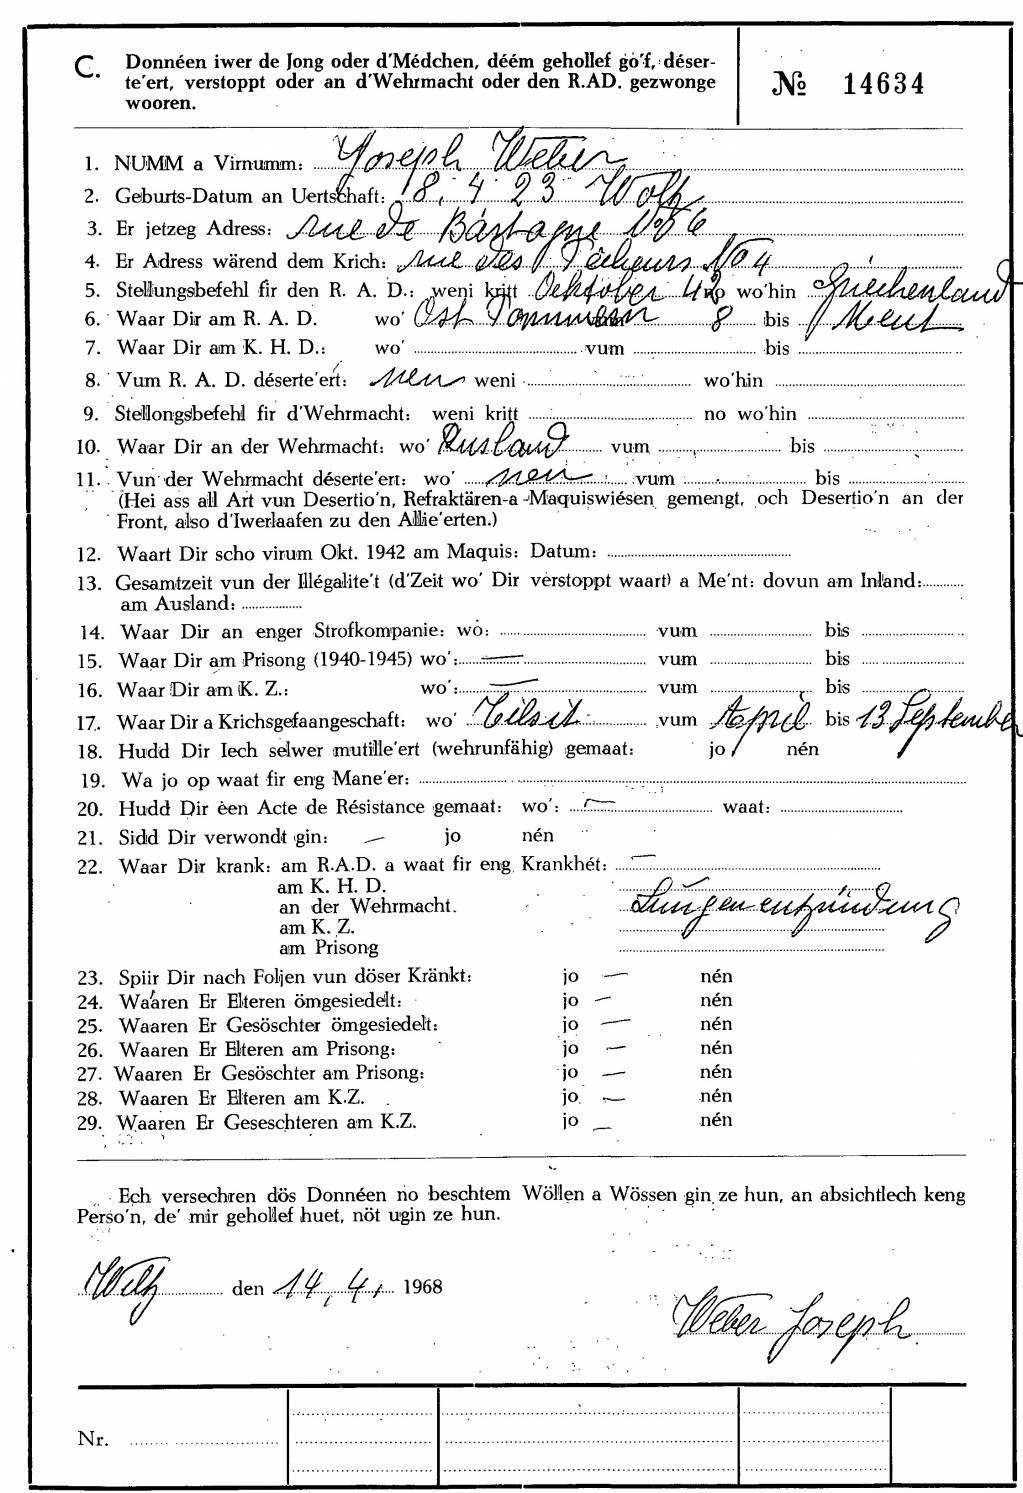 C. Donnéen iwer de Jong oder d'Médchen, déém gehollef go'f, déser-
te'ert, verstoppt oder an d'Wehrmacht oder den R.AD. gezwonge
wooren.
№ 14634
1. NUMM a Virnumm: Joseph Weber
2. Geburts-Datum an Uertschaft: 18. 4 23 Woltz
3. Er jetzeg Adress: rue de Bastogne No 56
4. Er Adress wärend dem Krich: rue des Pêcheurs No 4
5. Stellungsbefehl fir den R. A. D.: weni kritt Oektober 42 no wo'hin Griechenland
6. Waar Dir am R. A. D. wo' Ost Pommern 8 bis Ment
7. Waar Dir am K. H. D.: wo' vum bis
8. Vum R. A. D. déserte'ert: nen weni wo'hin
9. Stellongsbefehl fir d'Wehrmacht: weni kritt no wo'hin
10. Waar Dir an der Wehrmacht: wo' Rusland vum bis
11. Vun der Wehrmacht déserte'ert: wo' nen vum bis
(Hei ass all Art vun Desertio'n, Refraktären-a -Maquiswiésen gemengt, och Desertio'n an der
Front, also d'Iwerlaafen zu den Allie'erten.)
12. Waart Dir scho virum Okt. 1942 am Maquis: Datum:
13. Gesamtzeit vun der Illégalite't (d'Zeit wo' Dir verstoppt waart) a Me'nt: dovun am Inland:
am Ausland:
14. Waar Dir an enger Strofkompanie: wo: vum bis
15. Waar Dir am Prisong (1940-1945) wo': — vum bis
16. Waar Dir am K. Z.: wo': — vum bis
17. Waar Dir a Krichsgefaangeschaft: wo' Tilsit vum April bis 13 September
18. Hudd Dir Iech selwer mutille'ert (wehrunfähig) gemaat: jo nén
19. Wa jo op waat fir eng Mane'er:
20. Hudd Dir èen Acte de Résistance gemaat: wo': — waat:
21. Sidd Dir verwondt gin: — jo nén
22. Waar Dir krank: am R.A.D. a waat fir eng Krankhét: —
am K. H. D.
an der Wehrmacht. Lungenentzündung
am K. Z.
am Prisong
23. Spiir Dir nach Foljen vun döser Kränkt: jo — nén
24. Waaren Er Elteren ömgesiedelt: jo — nén
25. Waaren Er Gesöschter ömgesiedelt: jo — nén
26. Waaren Er Elteren am Prisong: jo — nén
27. Waaren Er Gesöschter am Prisong: jo — nén
28. Waaren Er Elteren am K.Z. jo — nén
29. Waaren Er Geseschteren am K.Z. jo — nén
Ech versechren dös Donnéen no beschtem Wöllen a Wössen gin ze hun, an absichtlech keng
Perso'n, de' mir gehollef huet, nöt ugin ze hun.
Wiltz den 14. 4. 1968
Weber Joseph
Nr.